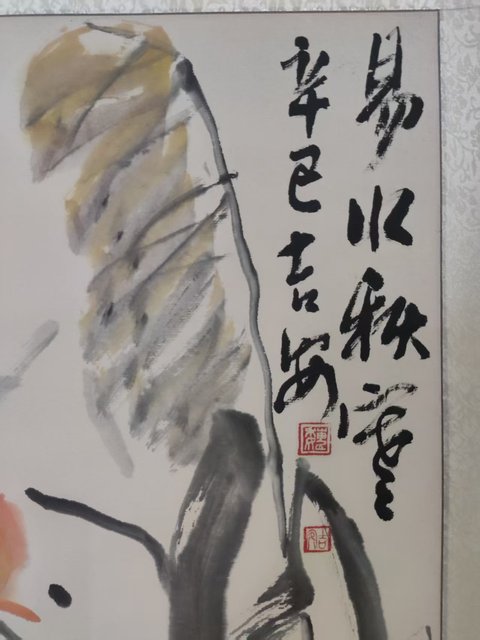 易水秋寒
辛巳吉安